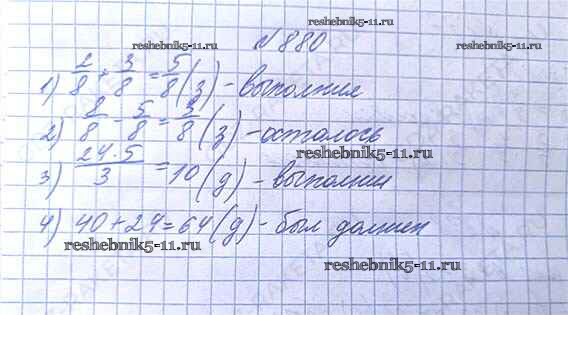 reshebnik5-11.ru №880 reshebnik5-11.ru
1) 2/8 + 3/8 = 5/8 (з) - выполнил
2) 8/8 - 5/8 = 3/8 (з) - осталось
reshebnik5-11.ru
3) 24·5/3 = 10 (д) - выполнил
4) 40+24=64 (д) - был должен
reshebnik5-11.ru
reshebnik5-11.ru